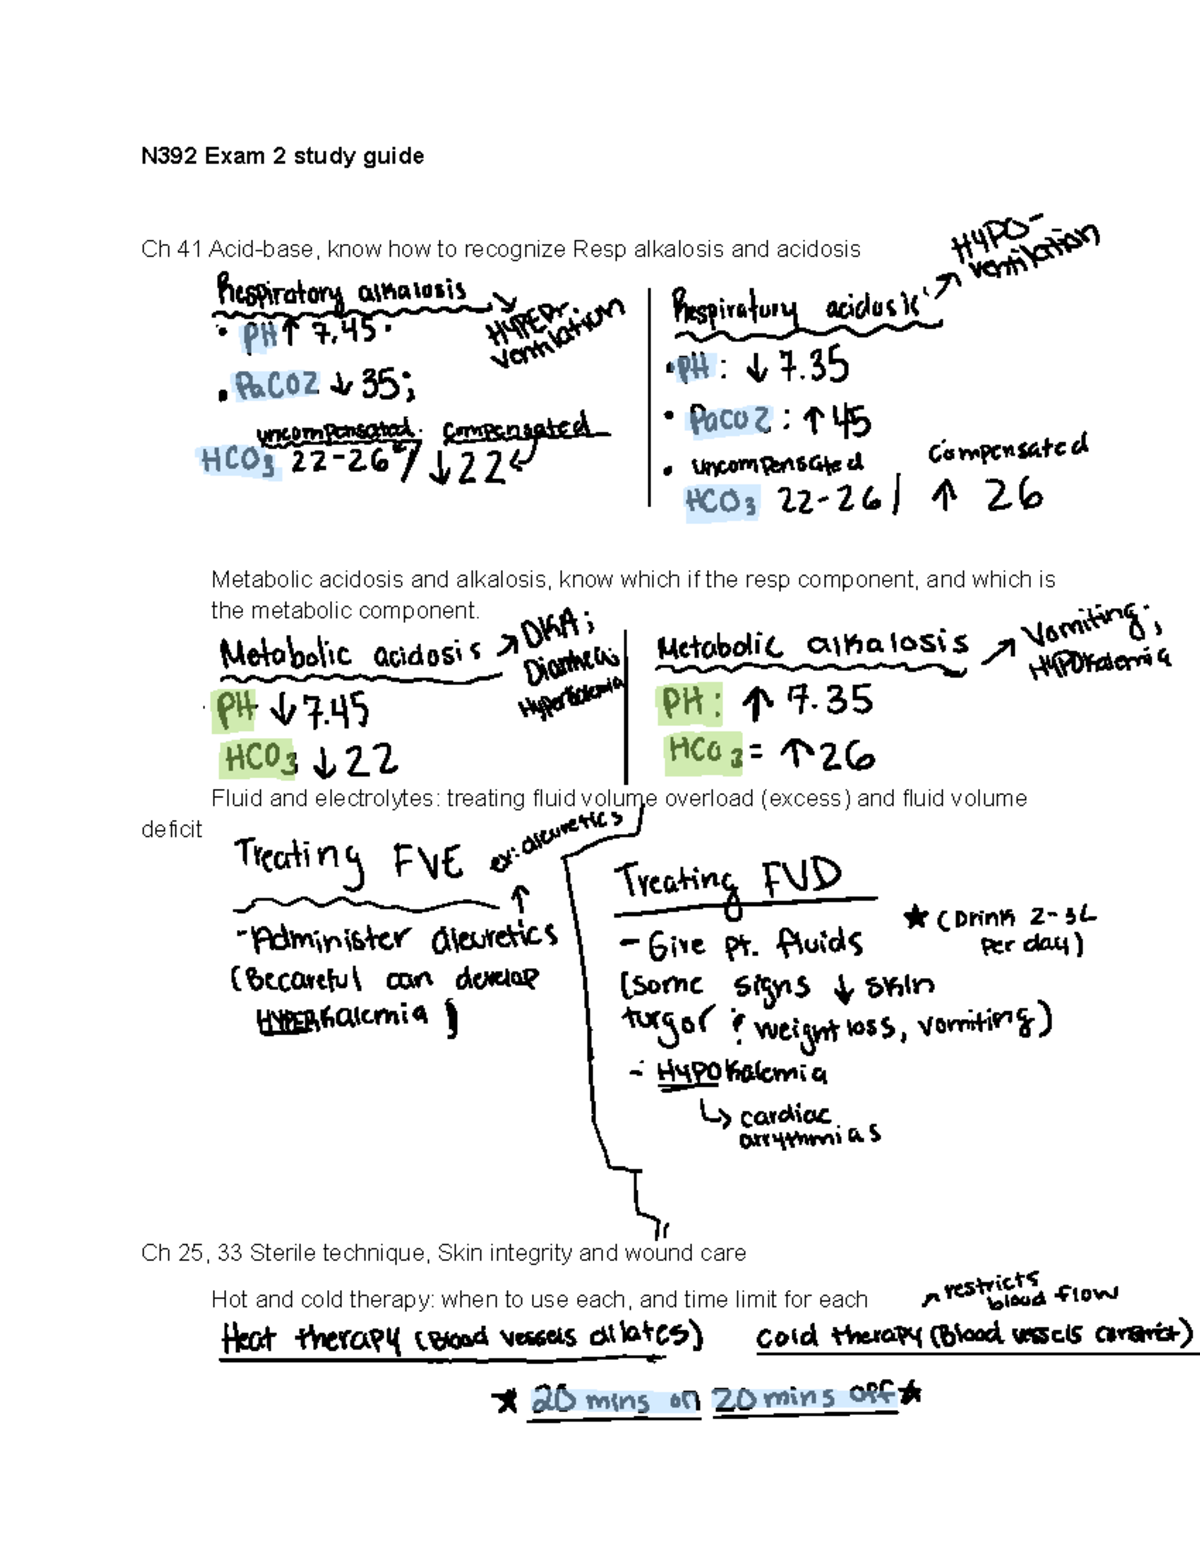 N392 Exam 2 study guide
Ch 41 Acid-base, know how to recognize Resp alkalosis and acidosis
Respiratory alkalosis → HYPER-
ventilation
• PH ↑ 7.45
• PaCO2 ↓ 35;
uncompensated. compensated
HCO3 22-26 / ↓ 22
Respiratory acidosis → HYPO-
ventilation
• PH: ↓ 7.35
• PaCO2: ↑ 45
• uncompensated compensated
HCO3 22-26 / ↑ 26
Metabolic acidosis and alkalosis, know which if the resp component, and which is
the metabolic component.
Metabolic acidosis → DKA;
Diarrhea;
Hyperkalemia
PH ↓ 7.45
HCO3 ↓ 22
Metabolic alkalosis → Vomiting;
HYPOkalemia
PH: ↑ 7.35
HCO3 = ↑ 26
Fluid and electrolytes: treating fluid volume overload (excess) and fluid volume
deficit
Treating FVE ex: dieuretics
↑
- Administer dieuretics
(Becareful can develop
HYPERkalemia)
Treating FVD
- Give pt. fluids ★ (Drink 2-3L
per day)
(some signs ↓ skin
turgor ; weight loss, vomiting)
- HYPOkalemia
↳ cardiac
arrythmias
Ch 25, 33 Sterile technique, Skin integrity and wound care
Hot and cold therapy: when to use each, and time limit for each
Heat therapy (Blood vessels dilates)
→ restricts
blood flow
cold therapy (Blood vessels constrict)
★ 20 mins on 20 mins off ★